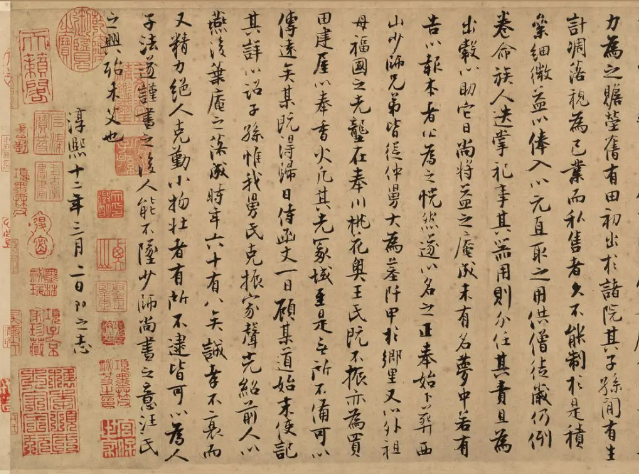 力為之贍塋舊有田初出於諸院其子孫間有生
計凋落視為己業而私售者久不能制於是積
絫細微益以俸入以元直取之用供僧徒歲仍例
卷命族人迭掌祀事其器用則分任其責且為
出穀以助它日尚將益之庵成未有名夢中若有
告以報本者公為之恍然遂以名之正奉始卜葬西
山少師兄弟皆從仲舅大為墓阡甲於鄉里又以外祖
母福國之先壟在奉川桃花奧王氏既不振亦為買
田建屋以奉香火凡其先冢域至是无所不備可以
傳遠矣某既得歸日侍函丈一日顧某道始末使記
其詳以詔子孫惟我舅氏克振家聲光紹前人以
燕後葉庵之落成時年六十有八矣誠孝不衰而
又精力絕人克勤小物壯者有所不逮皆可以為人
子法遂謹書之後人能不墜少師尚書之意汪氏
之興殆未艾也
淳熙十二年三月一日之志
天籟閣
項子京家珍藏